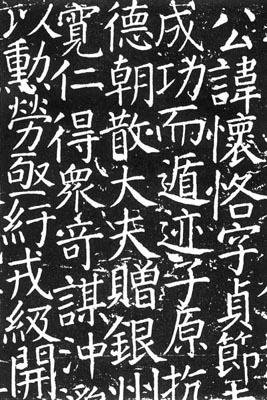 公諱懷恪字貞節
成功而遁迹子原哲
德朝散大夫贈銀州
寬仁得衆奇謀沖
以勳勞亟紆戎級開